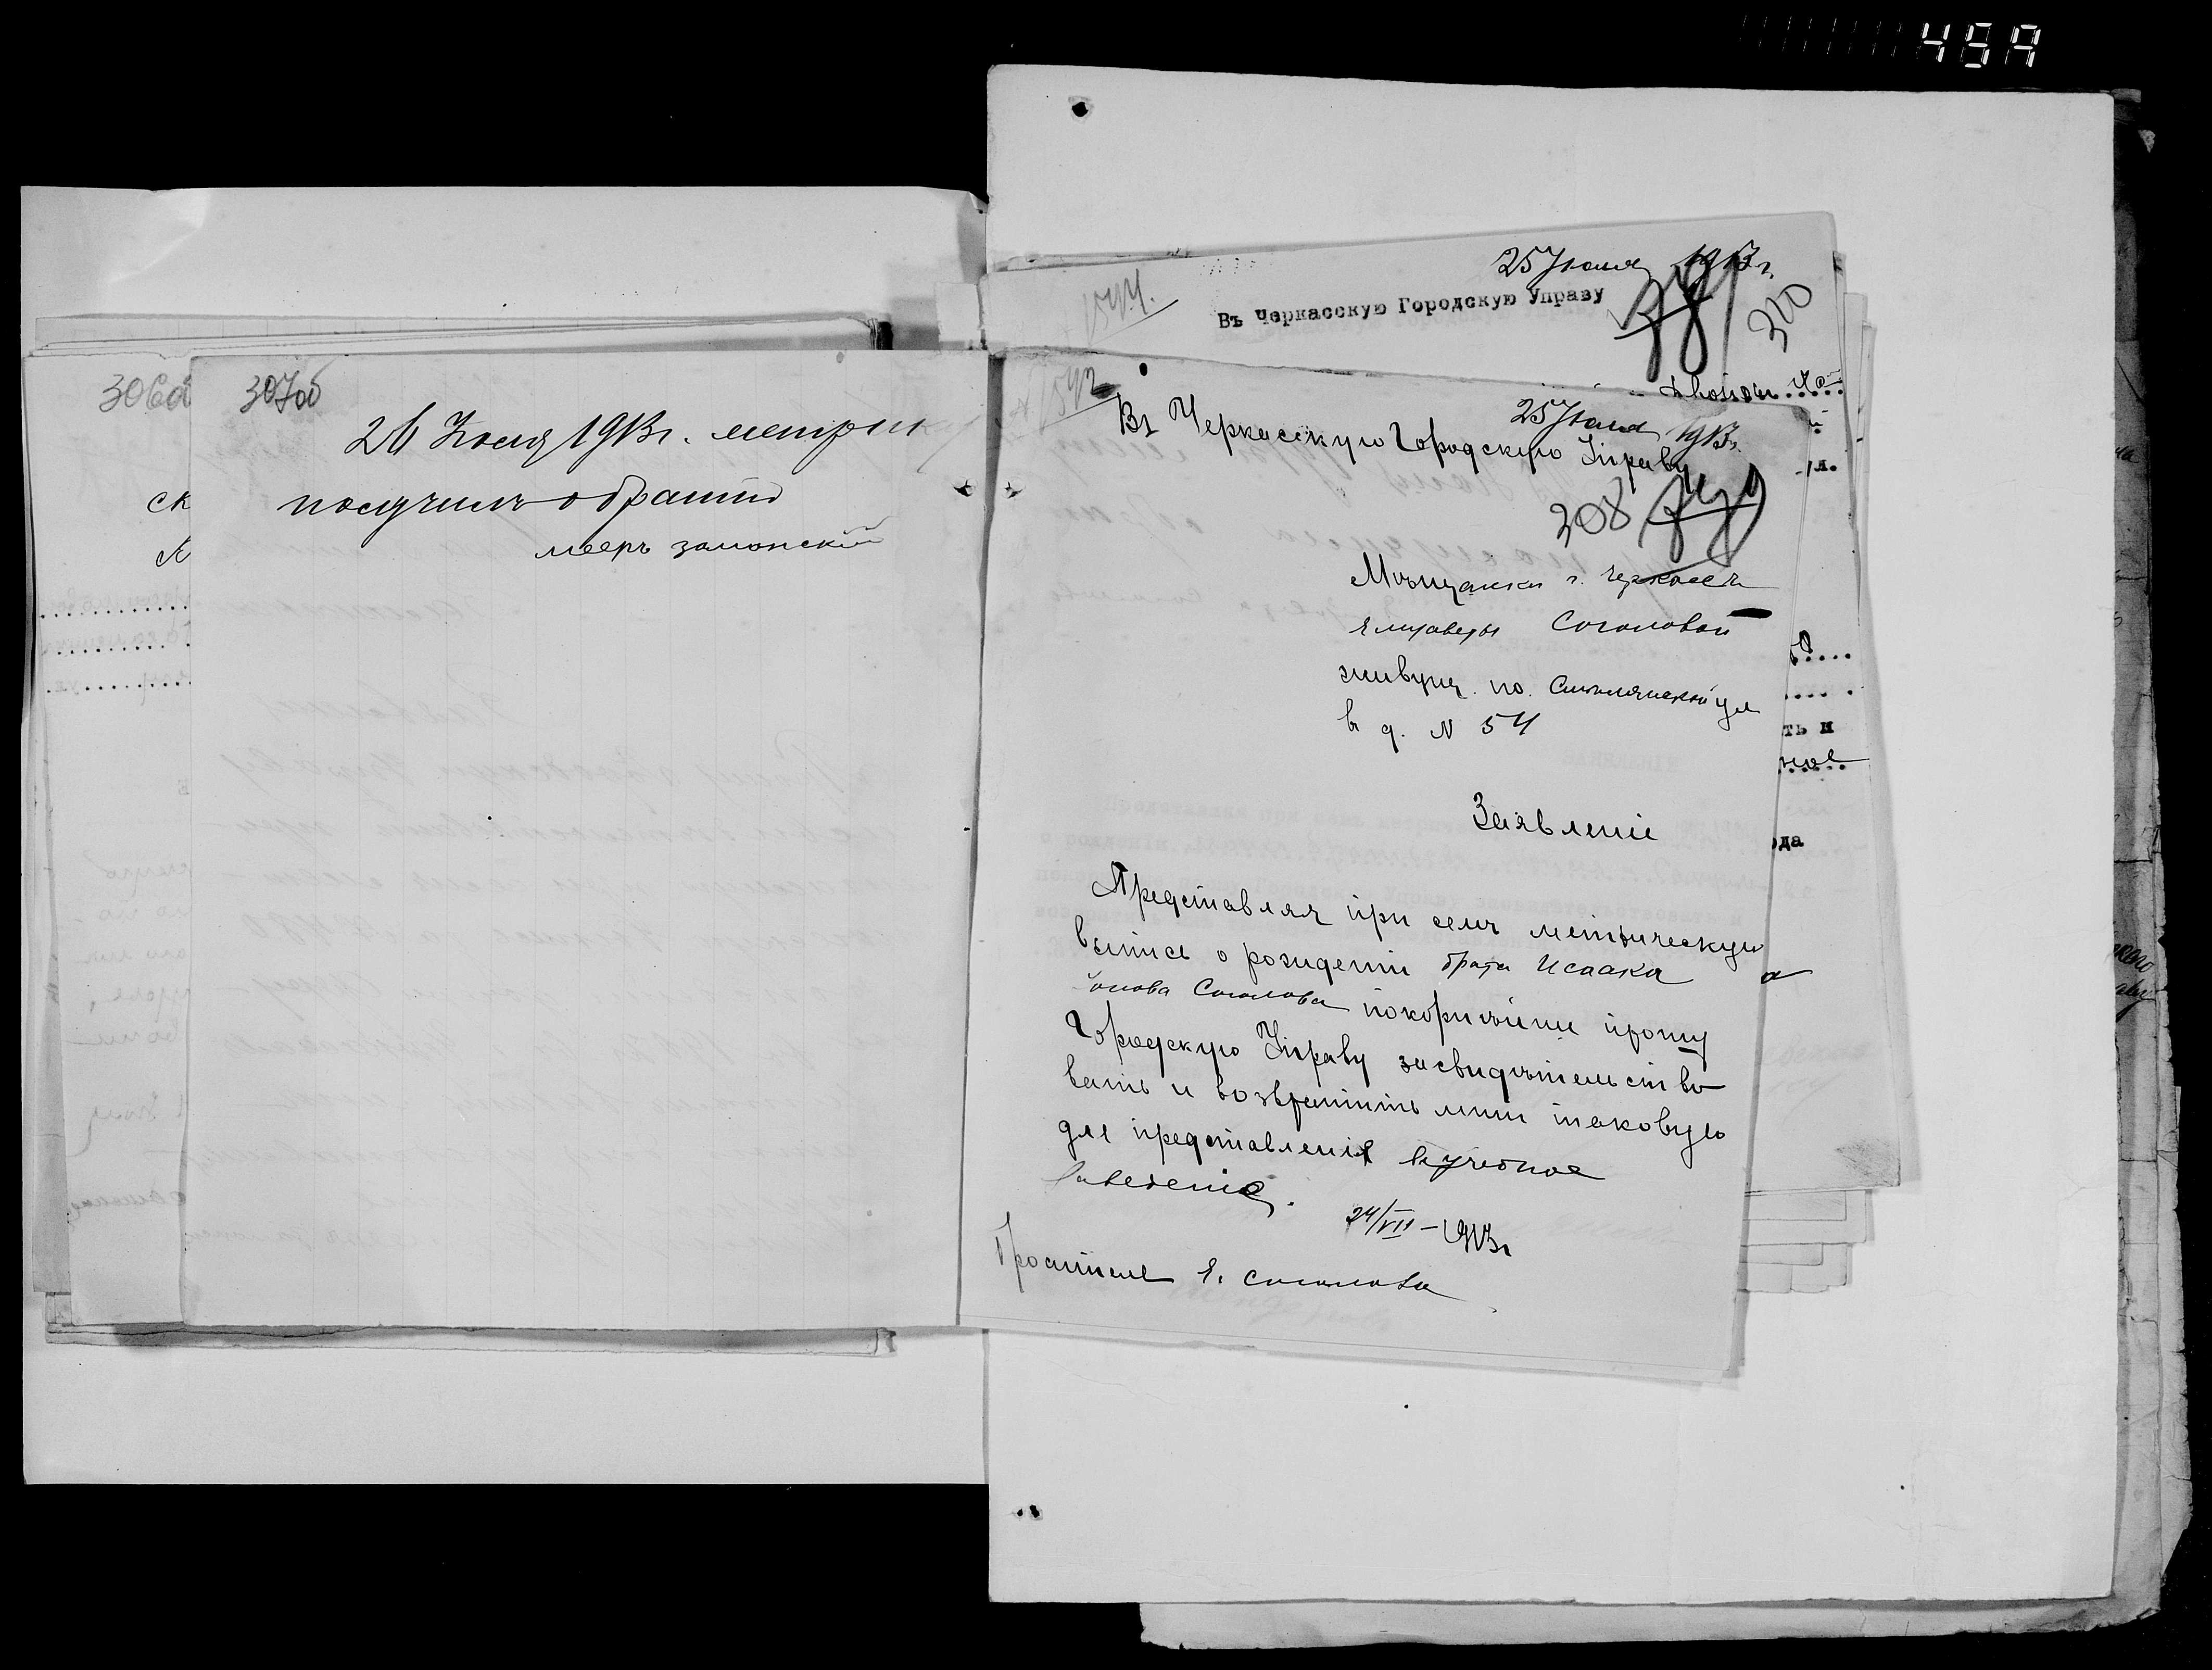 459
306об
307об
26 Июля 1913 г. метрик
получилъ обратно
Меер Замонский
25 Июля 1913 г.
Въ Черкасскую Городскую Управу
310
1572
25 Июля 1913 г.
Въ Черкасскую Городскую Управу
308
Мѣщанки г. Черкассъ
Елизаветы Соголовой
живущ. по Смелянской ул
въ д. N 54
Заявленіе
Представляя при семъ метрическую
выпись о рожденіи брата Исаака
Соголова покорнѣйше прошу
Городскую Управу засвидѣтельство
вать и возвратить мнѣ таковую
для представленія въ учебное
заведеніе.
24/VII – 1913 г
Просител Е. Соголова